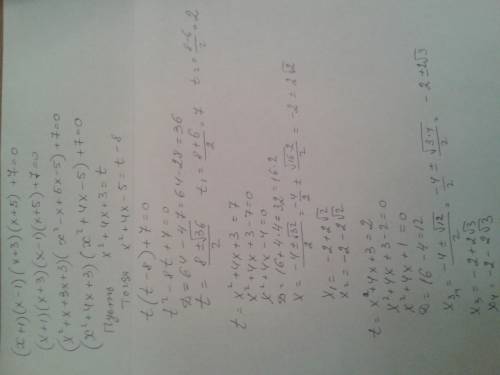 (x+1)(x-1)(x+3)(x+5)+7=0
(x+1)(x+3)(x-1)(x+5)+7=0
(x²+x+3x+3)(x²-x+5x-5)+7=0
(x²+4x+3)(x²+4x-5)+7=0
Пусть x²+4x+3=t
Тогда x²+4x-5=t-8
t(t-8)+7=0
t²-8t+7=0
D=64-4·7=64-28=36
t=(8±√36)/2 t₁=(8+6)/2=7 t₂=(8-6)/2=2
t=x²+4x+3=7
x²+4x+3-7=0
x²+4x-4=0
D=16+4·4=32=16·2
x=(-4±√32)/2=-4/2±√(16·2)/2=-2±2√2
x₁=-2+2√2
x₂=-2-2√2
t=x²+4x+3=2
x²+4x+3-2=0
x²+4x+1=0
D=16-4=12
x₃,₄=(-4±√12)/2=-4/2±√(3·4)/2=-2±2√3
x₃=-2+2√3
x₄=-2-2√3